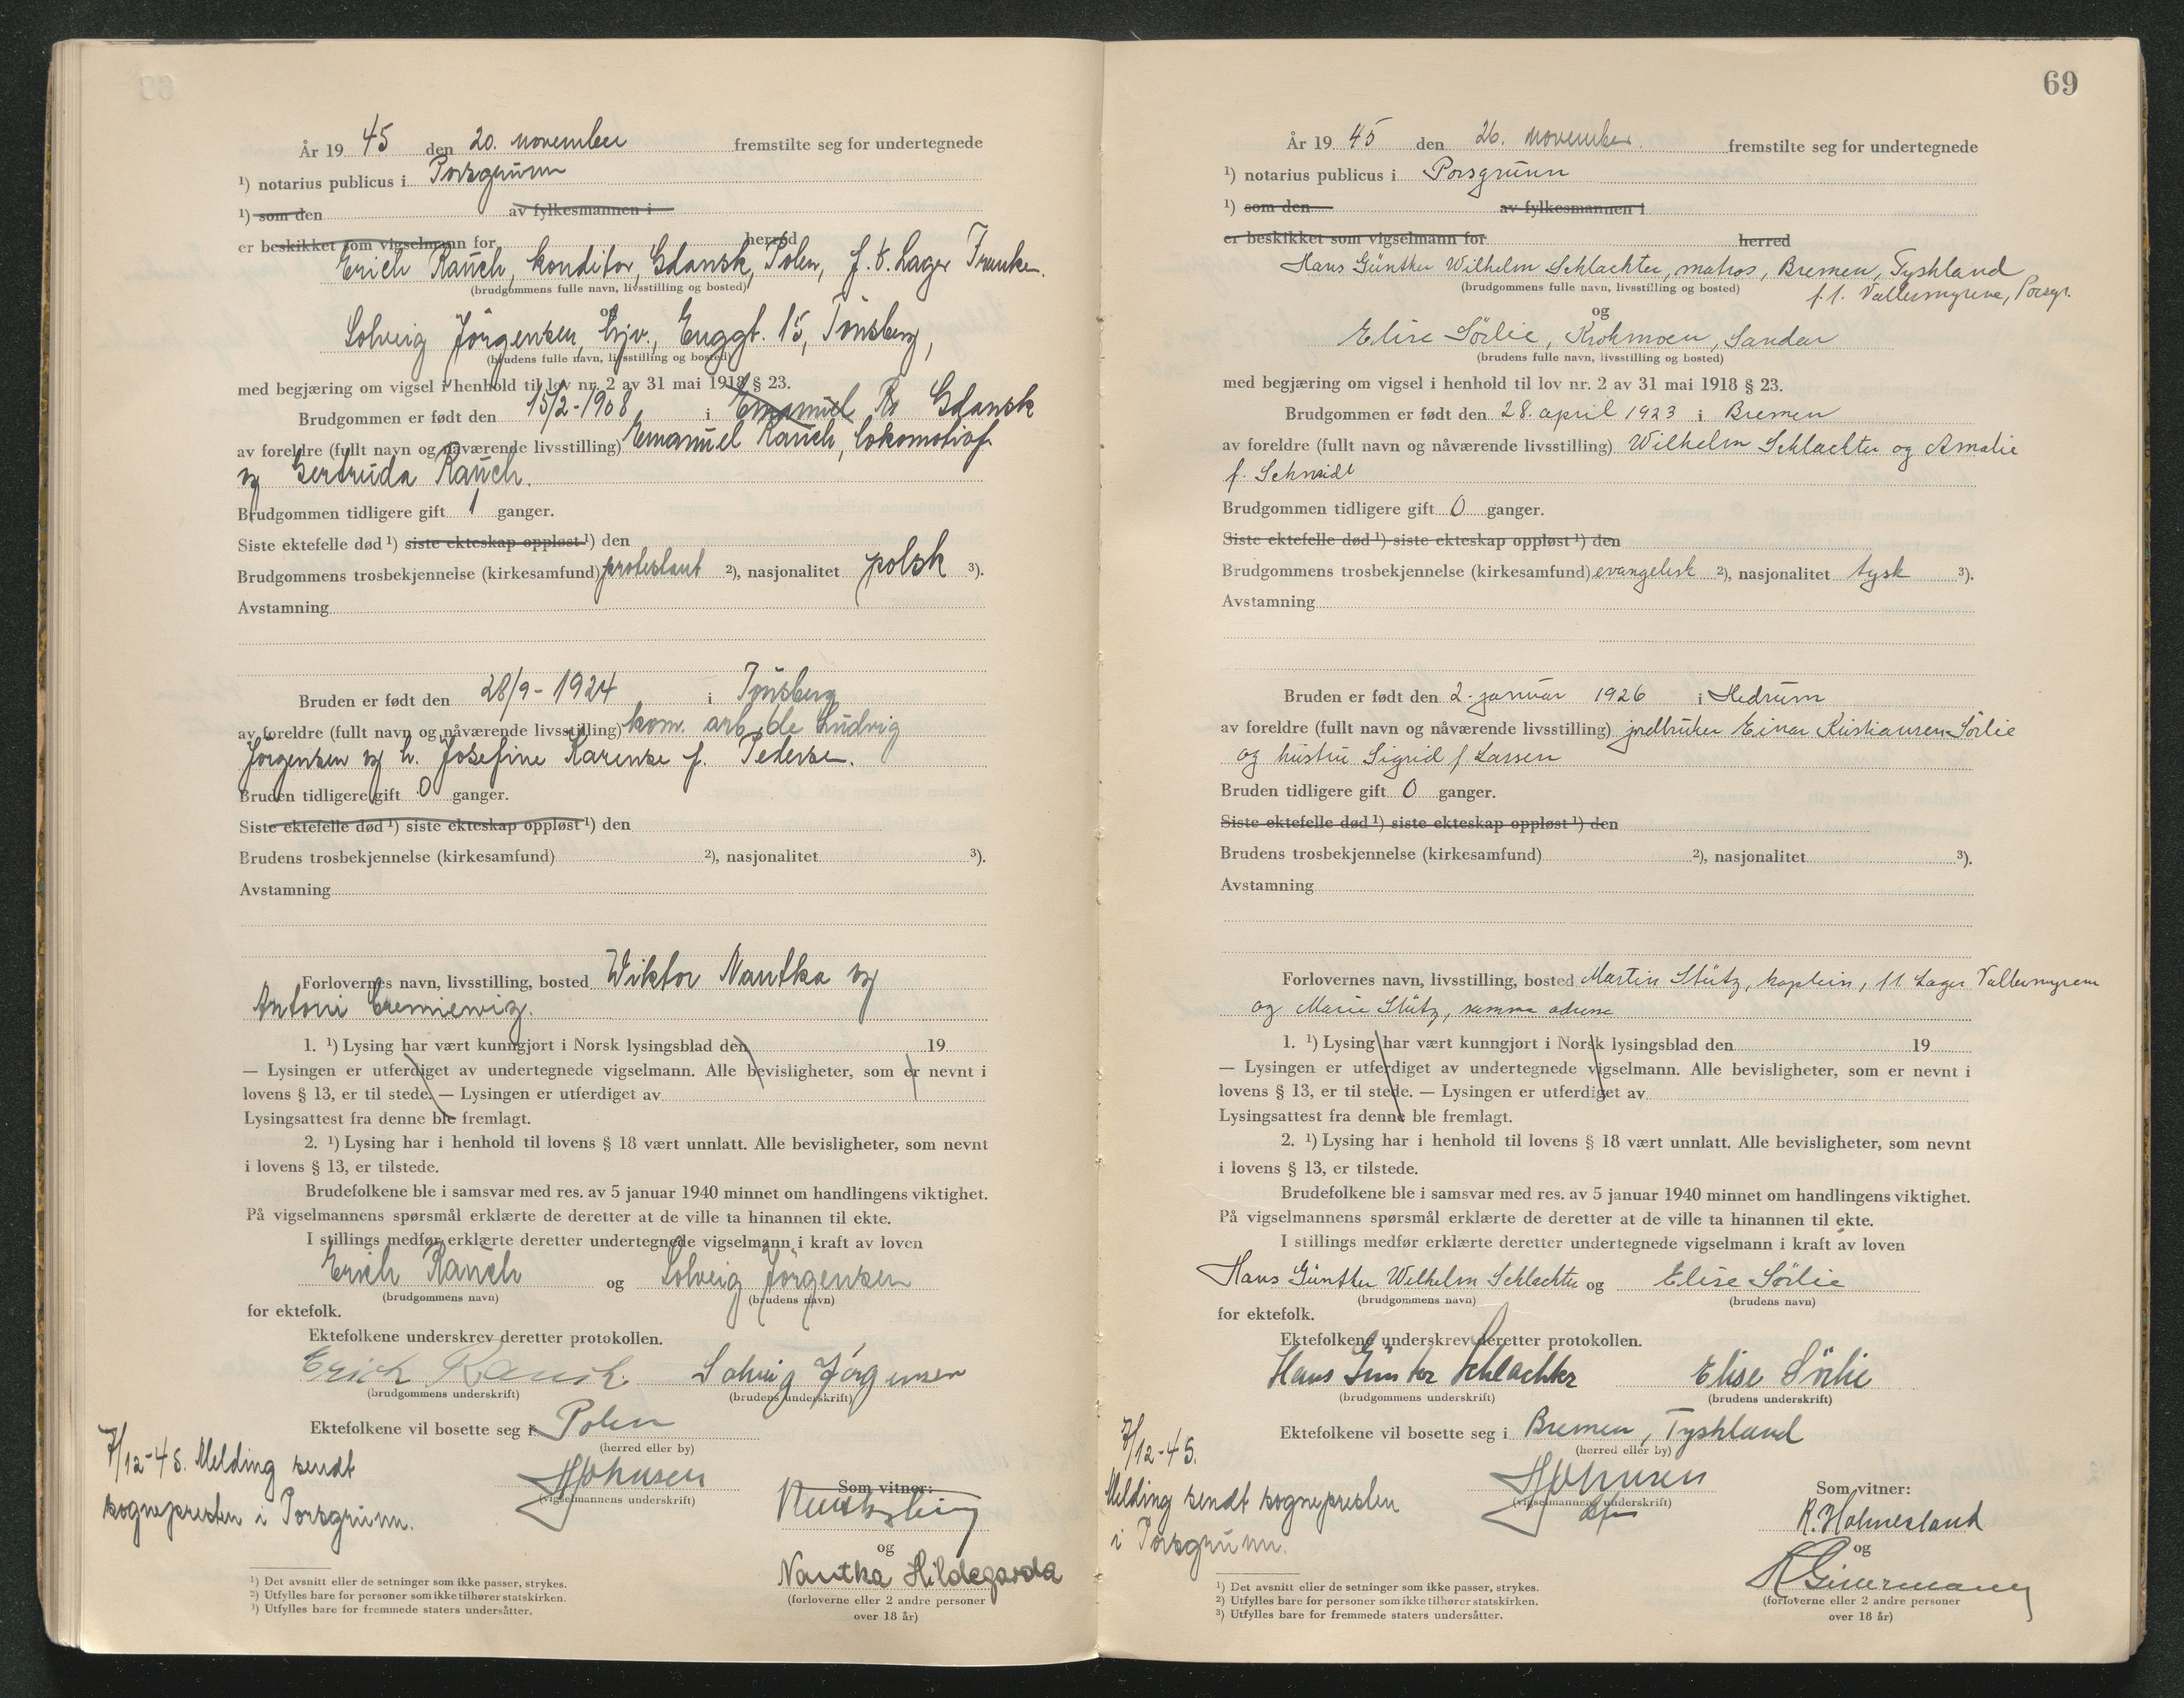 År 19 45 den 20. november fremstilte seg for undertegnede
¹) notarius publicus i Porsgrunn
¹) som den av fylkesmannen i
er beskikket som vigselmann for herred
Erich Rauch, konditor, Gdansk, Polen, f. t. Lager
(brudgommens fulle navn, livsstilling og bosted)
og
Solveig Jörgensen, hjv., Enggt. 15, Tönsberg,
(brudens fulle navn, livsstilling og bosted)
med begjæring om vigsel i henhold til lov nr. 2 av 31 mai 1918 § 23.
Brudgommen er født den 15/2-1908 i Emanuel Ra Gdansk
av foreldre (fullt navn og nåværende livsstilling) Emanuel Rauch, lokomotivf.
og Gertruda Rauch.
Brudgommen tidligere gift 1 ganger.
Siste ektefelle død ¹) siste ekteskap oppløst ¹) den
Brudgommens trosbekjennelse (kirkesamfund) protestant ²), nasjonalitet polsk ³).
Avstamning
Bruden er født den 28/9-1924 i Tönsberg
av foreldre (fullt navn og nåværende livsstilling) kom. arb.de Ludvig
Jörgensen og h. Josefine Karense f. Pedersen.
Bruden tidligere gift 0 ganger.
Siste ektefelle død ¹) siste ekteskap oppløst ¹) den
Brudens trosbekjennelse (kirkesamfund) ²), nasjonalitet ³).
Avstamning
Forlovernes navn, livsstilling, bosted Wiktor Nautka og
Antoni
1. ¹) Lysing har vært kunngjort i Norsk lysingsblad den 19
— Lysingen er utferdiget av undertegnede vigselmann. Alle bevisligheter, som er nevnt i
lovens § 13, er til stede. — Lysingen er utferdiget av
Lysingsattest fra denne ble fremlagt.
2. ¹) Lysing har i henhold til lovens § 18 vært unnlatt. Alle bevisligheter, som nevnt
i lovens § 13, er tilstede.
Brudefolkene ble i samsvar med res. av 5 januar 1940 minnet om handlingens viktighet.
På vigselmannens spørsmål erklærte de deretter at de ville ta hinannen til ekte.
I stillings medfør erklærte deretter undertegnede vigselmann i kraft av loven
Erich Rauch og Solveig Jörgensen
(brudgommens navn) (brudens navn)
for ektefolk.
Ektefolkene underskrev deretter protokollen.
Erich Rauch. Solveig Jörgensen
(brudgommens underskrift) (brudens underskrift)
Ektefolkene vil bosette seg i Polen
(herred eller by)
7/12-45. Melding sendt
sognepresten i Porsgrunn.
(vigselmannens underskrift)
Som vitner:
og
Nautka Hildegarda
(forloverne eller 2 andre personer
over 18 år)
¹) Det avsnitt eller de setninger som ikke passer, strykes.
²) Utfylles bare for personer som ikke tilhører statskirken.
³) Utfylles bare for fremmede staters undersåtter.
69
År 19 45 den 26. november. fremstilte seg for undertegnede
¹) notarius publicus i Porsgrunn
¹) som den av fylkesmannen i
er beskikket som vigselmann for herred
Hans Günther Wilhelm Schlachter, matros, Bremen, Tyskland
(brudgommens fulle navn, livsstilling og bosted) f.t. Vallermyrene, Porsgr.
og
Elise Sörlie, Krokmoen, Sandar
(brudens fulle navn, livsstilling og bosted)
med begjæring om vigsel i henhold til lov nr. 2 av 31 mai 1918 § 23.
Brudgommen er født den 28. april 1923 i Bremen
av foreldre (fullt navn og nåværende livsstilling) Wilhelm Schlachter og Amalie
f. Schmidt
Brudgommen tidligere gift 0 ganger.
Siste ektefelle død ¹) siste ekteskap oppløst ¹) den
Brudgommens trosbekjennelse (kirkesamfund) evangelisk ²), nasjonalitet tysk ³).
Avstamning
Bruden er født den 2. januar 1926 i Hedrum
av foreldre (fullt navn og nåværende livsstilling) jordbruker Einar Kristiansen Sörlie
og hustru Sigrid f. Larsen
Bruden tidligere gift 0 ganger.
Siste ektefelle død ¹) siste ekteskap oppløst ¹) den
Brudens trosbekjennelse (kirkesamfund) ²), nasjonalitet ³).
Avstamning
Forlovernes navn, livsstilling, bosted Martin Stütz, kaptein, f.t. Lager Vallermyrene
og Marie Stütz, samme adresse
1. ¹) Lysing har vært kunngjort i Norsk lysingsblad den 19
— Lysingen er utferdiget av undertegnede vigselmann. Alle bevisligheter, som er nevnt i
lovens § 13, er til stede. — Lysingen er utferdiget av
Lysingsattest fra denne ble fremlagt.
2. ¹) Lysing har i henhold til lovens § 18 vært unnlatt. Alle bevisligheter, som nevnt
i lovens § 13, er tilstede.
Brudefolkene ble i samsvar med res. av 5 januar 1940 minnet om handlingens viktighet.
På vigselmannens spørsmål erklærte de deretter at de ville ta hinannen til ekte.
I stillings medfør erklærte deretter undertegnede vigselmann i kraft av loven
Hans Günther Wilhelm Schlachter og Elise Sörlie
(brudgommens navn) (brudens navn)
for ektefolk.
Ektefolkene underskrev deretter protokollen.
Hans Günter Schlachter Elise Sörlie
(brudgommens underskrift) (brudens underskrift)
Ektefolkene vil bosette seg i Bremen, Tyskland
(herred eller by)
7/12-45.
Melding sendt sognepresten
i Porsgrunn.
(vigselmannens underskrift)
Som vitner:
R. Holmesland
og
(forloverne eller 2 andre personer
over 18 år)
¹) Det avsnitt eller de setninger som ikke passer, strykes.
²) Utfylles bare for personer som ikke tilhører statskirken.
³) Utfylles bare for fremmede staters undersåtter.